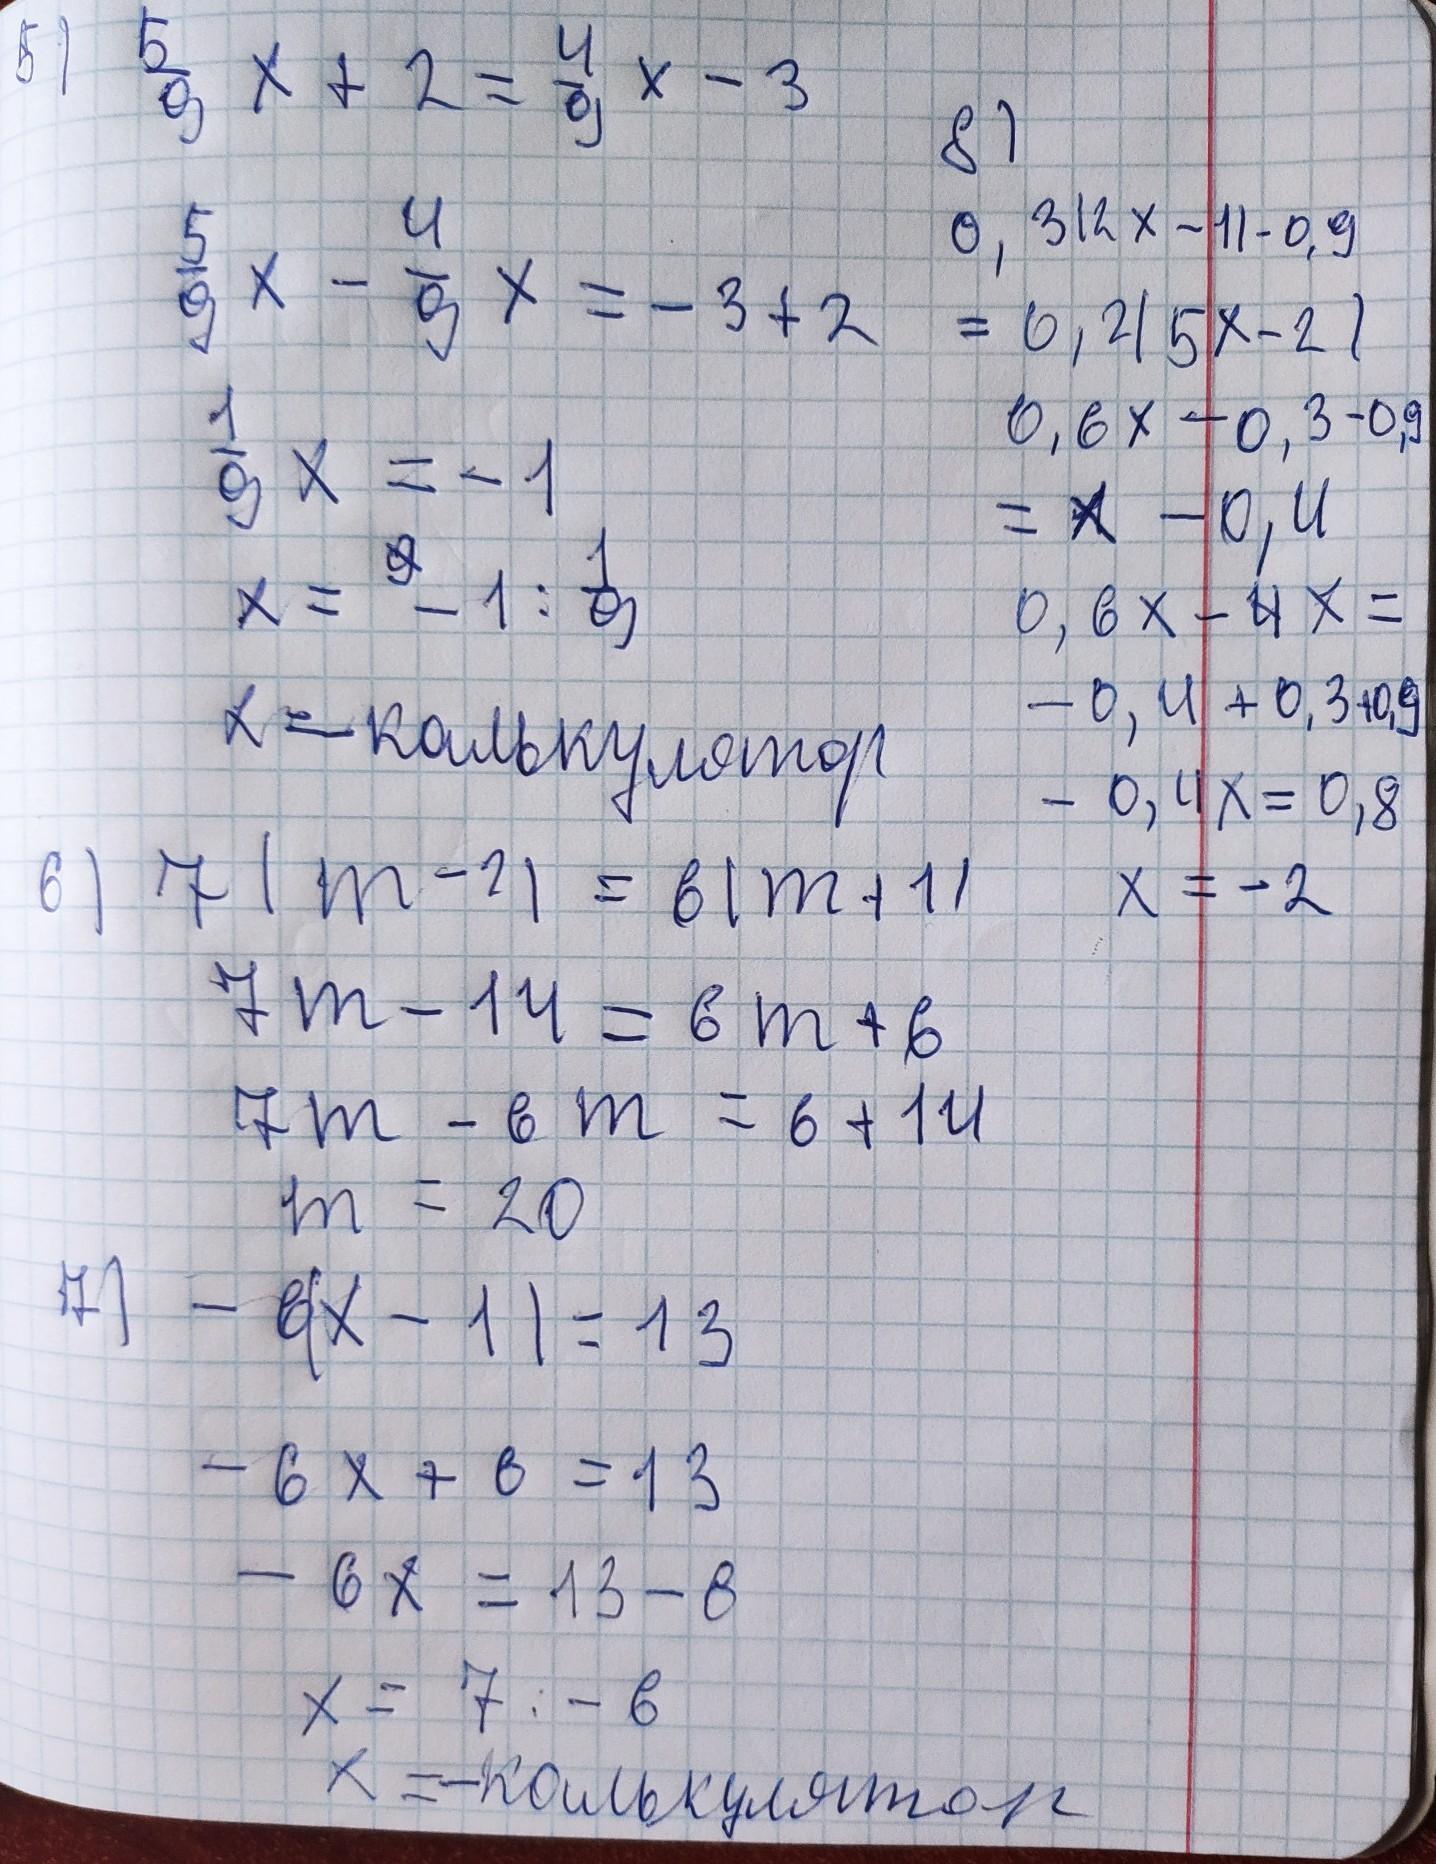 5) 5/9 x + 2 = 4/9 x - 3
5/9 x - 4/9 x = - 3 + 2
1/9 x = - 1
x = - 1 : 1/9
x = - калькулятор
6) 7(m - 2) = 6(m + 1)
7m - 14 = 6m + 6
7m - 6m = 6 + 14
m = 20
7) - 6(x - 1) = 13
- 6x + 6 = 13
- 6x = 13 - 6
x = 7 : - 6
x = - калькулятор
8)
0,3(2x - 1) - 0,9
= 0,2(5x - 2)
0,6x - 0,3 - 0,9
= x - 0,4
0,6x - x =
- 0,4 + 0,3 + 0,9
- 0,4x = 0,8
x = - 2